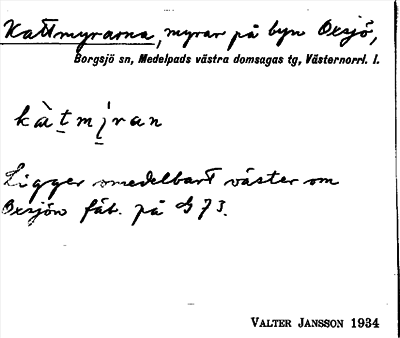 Kattmyrarna, myrar på byn Oxsjö,
Borgsjö sn, Medelpads västra domsagas tg, Västernorrl. l.
kàtmı̀ran
Ligger omedelbart väster om
Oxsjön fäb. på G 73.
VALTER JANSSON 1934